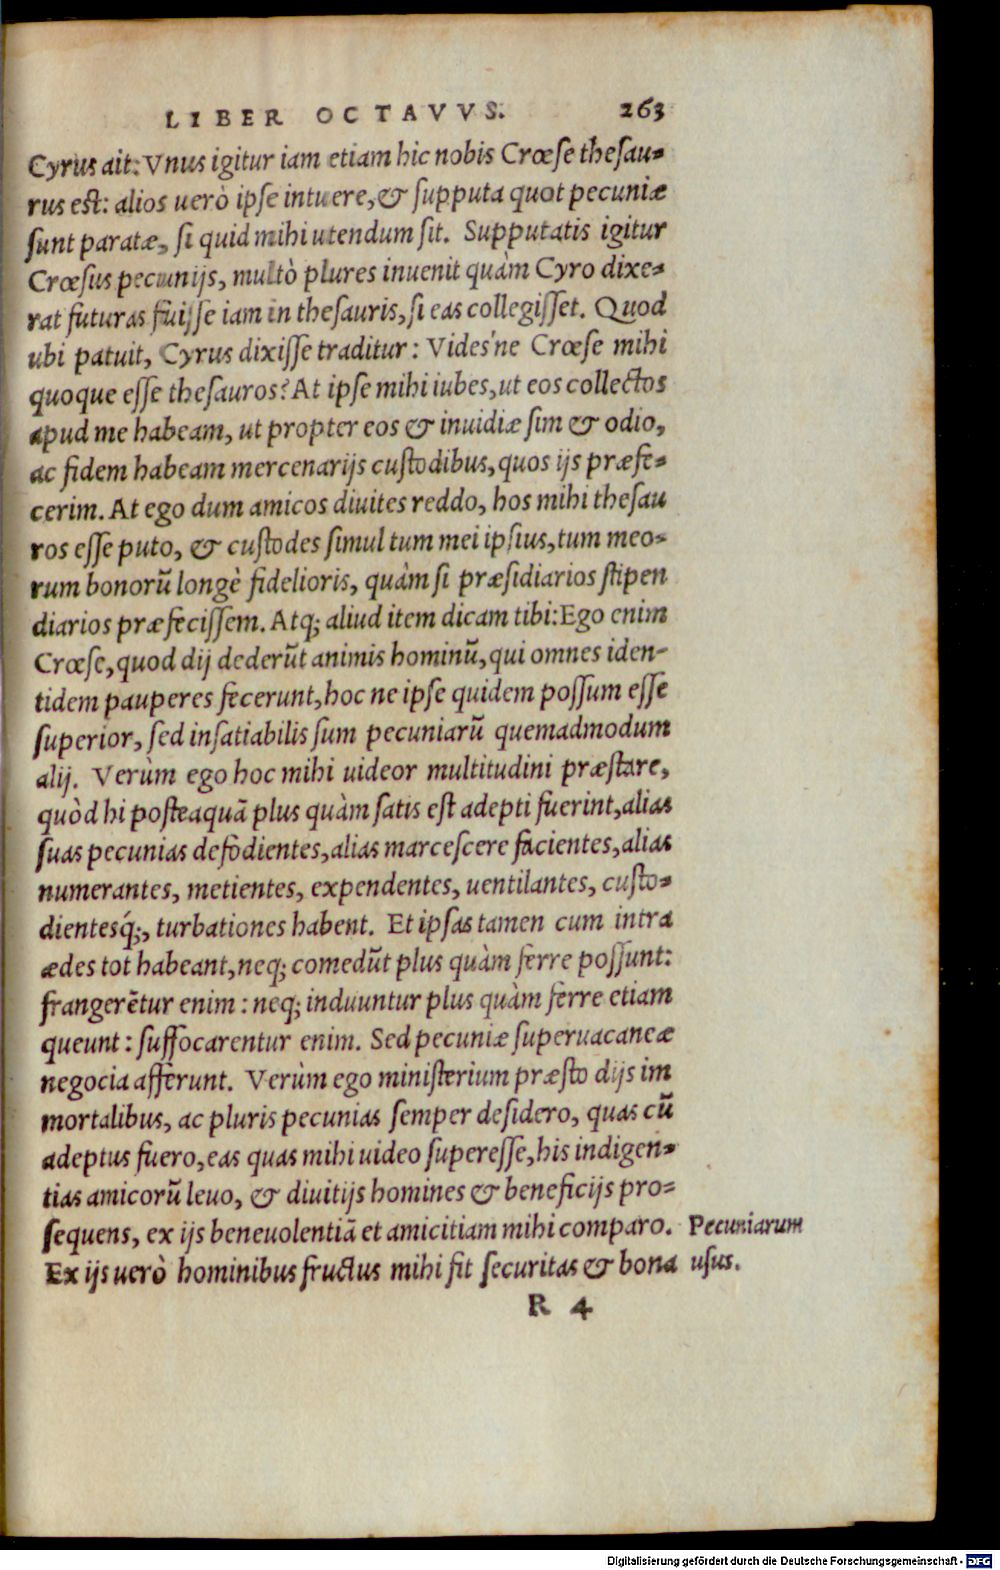 LIBER OCTAVVS. 263
Cyrus ait: Vnus igitur iam etiam hic nobis Crœse thesau-
rus est: alios uerò ipse intuere, & supputa quot pecuniæ
sunt paratæ, si quid mihi utendum sit. Supputatis igitur
Crœsus pecunijs, multò plures inuenit quàm Cyro dixe-
rat futuras fuisse iam in thesauris, si eas collegisset. Quod
ubi patuit, Cyrus dixisse traditur: Vides'ne Crœse mihi
quoque esse thesauros? At ipse mihi iubes, ut eos collectos
apud me habeam, ut propter eos & inuidiæ sim & odio,
ac fidem habeam mercenarijs custodibus, quos ijs præfe-
cerim. At ego dum amicos diuites reddo, hos mihi thesau
ros esse puto, & custodes simul tum mei ipsius, tum meo-
rum bonorũ longè fidelioris, quàm si præsidiarios stipen
diarios præfecissem. Atq; aliud item dicam tibi: Ego enim
Crœse, quod dij dederũt animis hominũ, qui omnes iden-
tidem pauperes fecerunt, hoc ne ipse quidem possum esse
superior, sed insatiabilis sum pecuniarũ quemadmodum
alij. Verùm ego hoc mihi uideor multitudini præstare,
quòd hi posteaquã plus quàm satis est adepti fuerint, alias
suas pecunias defodientes, alias marcescere facientes, alias
numerantes, metientes, expendentes, uentilantes, custo-
dientesq́;, turbationes habent. Et ipsas tamen cum intra
ædes tot habeant, neq; comedũt plus quàm ferre possunt:
frangerẽtur enim: neq; induuntur plus quàm ferre etiam
queunt: suffocarentur enim. Sed pecuniæ superuacaneæ
negocia afferunt. Verùm ego ministerium præsto dijs im
mortalibus, ac pluris pecunias semper desidero, quas cũ
adeptus fuero, eas quas mihi uideo superesse, his indigen-
tias amicorũ leuo, & diuitijs homines & beneficijs pro-
sequens, ex ijs beneuolentiã et amicitiam mihi comparo.
Ex ijs uerò hominibus fructus mihi fit securitas & bona
Pecuniarum
usus.
R 4
Digitalisierung gefördert durch die Deutsche Forschungsgemeinschaft - DFG